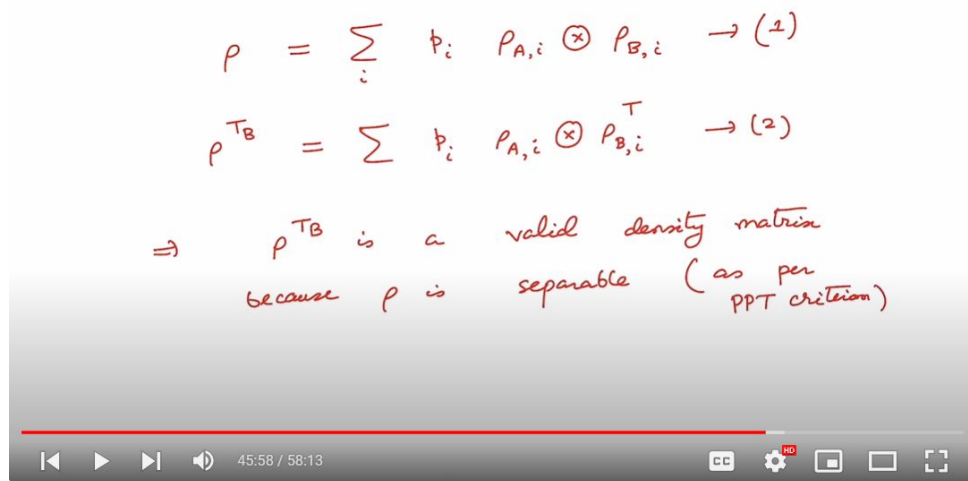 ρ = ∑ᵢ pᵢ ρ_{A,i} ⊗ ρ_{B,i} → (1)
ρ^{T_B} = ∑ pᵢ ρ_{A,i} ⊗ ρ_{B,i}^T → (2)
⇒ ρ^{T_B} is a valid density matrix
because ρ is separable (as per
PPT criterion)
45:58 / 58:13
CC
HD